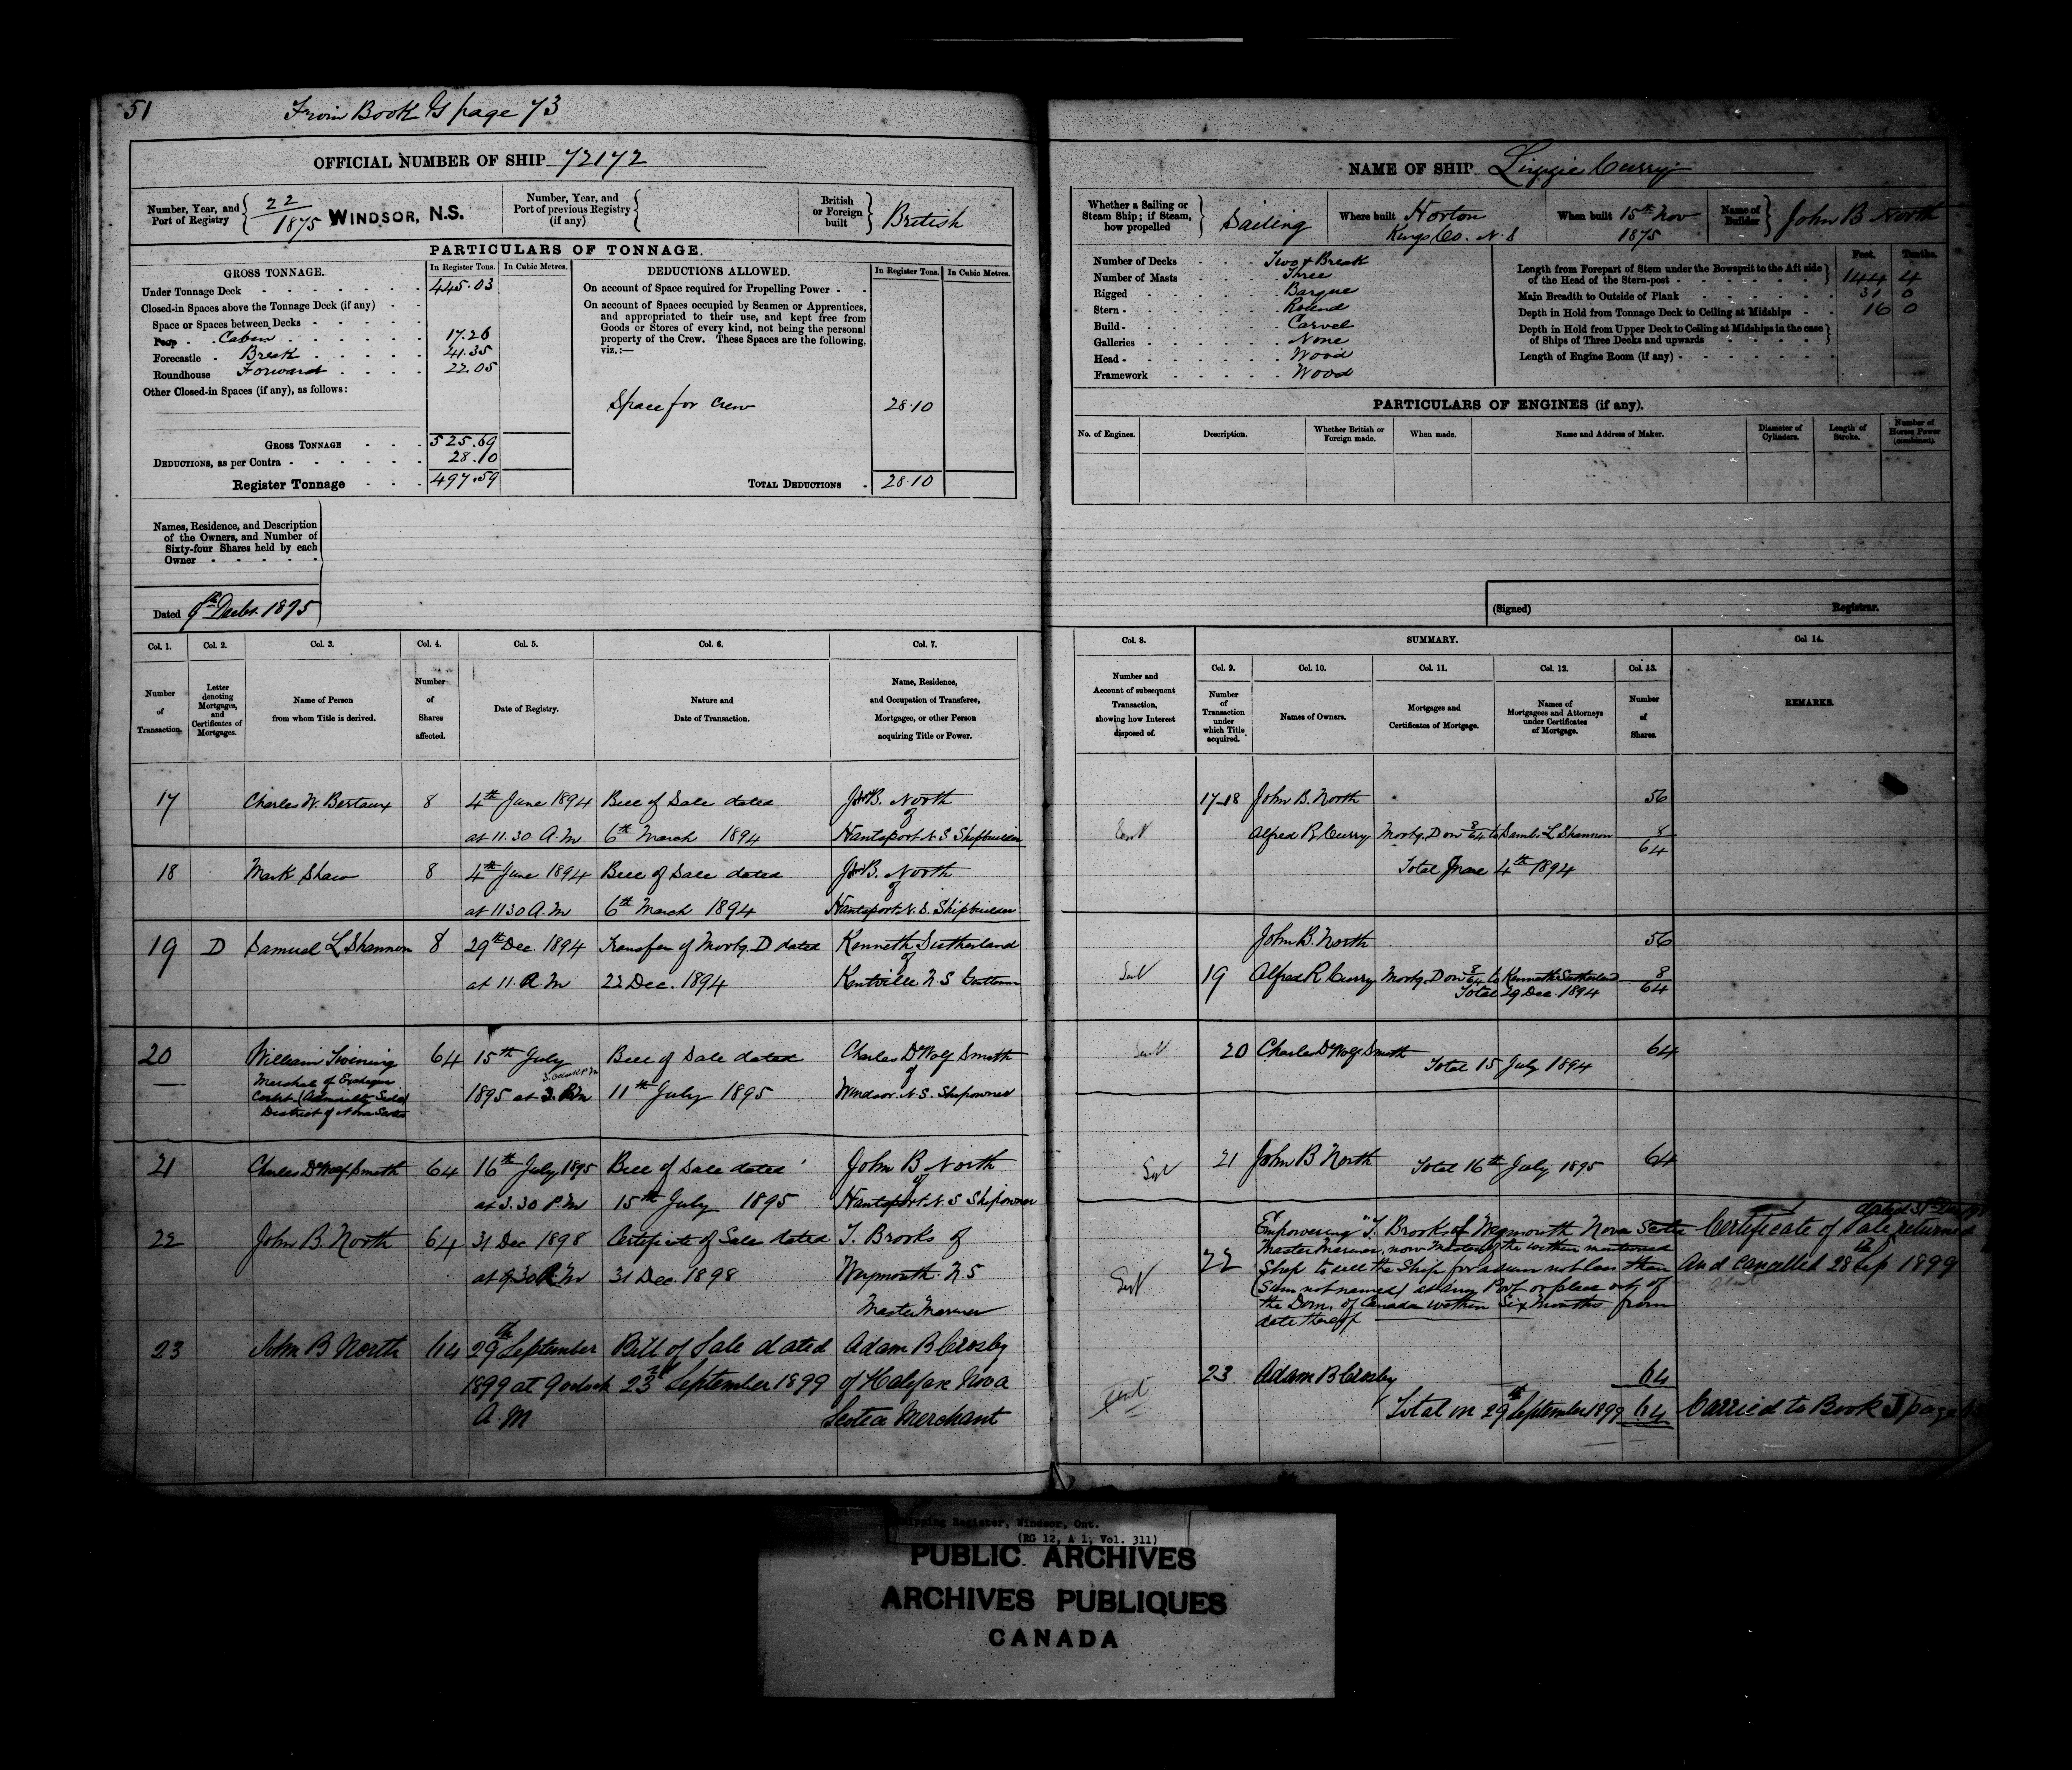 51
From Book G page 73
OFFICIAL NUMBER OF SHIP 72172
Number, Year, and Port of Registry { 22/1875 WINDSOR, N.S.
Number, Year, and Port of previous Registry (if any) {
British or Foreign built } British
PARTICULARS OF TONNAGE.
GROSS TONNAGE. In Register Tons. In Cubic Metres.
Under Tonnage Deck 445.03
Closed-in Spaces above the Tonnage Deck (if any)
Space or Spaces between Decks
Poop Cabin 17.26
Forecastle Break 41.35
Roundhouse Forward 22.05
Other Closed-in Spaces (if any), as follows:
GROSS TONNAGE 525.69
DEDUCTIONS, as per Contra 28.10
Register Tonnage 497.59
DEDUCTIONS ALLOWED. In Register Tons. In Cubic Metres.
On account of Space required for Propelling Power
On account of Spaces occupied by Seamen or Apprentices,
and appropriated to their use, and kept free from
Goods or Stores of every kind, not being the personal
property of the Crew. These Spaces are the following,
viz.:—
Space for Crew 28.10
TOTAL DEDUCTIONS 28.10
Names, Residence, and Description
of the Owners, and Number of
Sixty-four Shares held by each
Owner
Dated 9th Decbr 1875
Col. 1. Col. 2. Col. 3. Col. 4. Col. 5. Col. 6. Col. 7.
Number of Transaction.
Letter denoting Mortgages, and Certificates of Mortgages.
Name of Person from whom Title is derived.
Number of Shares affected.
Date of Registry.
Nature and Date of Transaction.
Name, Residence, and Occupation of Transferee, Mortgagee, or other Person acquiring Title or Power.
17 Charles W. Bertaux 8 4th June 1894 Bill of Sale dated John B. North
of
at 11.30 A.M 6th March 1894 Hantsport N.S Shipbuilder
18 Mark Shaw 8 4th June 1894 Bill of Sale dated John B. North
of
at 11 30 A.M 6th March 1894 Hantsport N.S. Shipbuilder
19 D Samuel L Shannon 8 29th Dec. 1894 Transfer of Mortg. D dated Kenneth Sutherland
of
at 11. A.M 22 Dec. 1894 Kentville N S
20 William Twining 64 15th July Bill of Sale dated Charles DeWolf Smith
Marshal of Exchequer of
Court (Admiralty Side) 1895 at 3 o'clock P.M 11th July 1895 Windsor N.S. Shipowner
District of Nova Scotia
21 Charles DeWolf Smith 64 16th July 1895 Bill of Sale dated John B North
of
at 3.30 P.M 15th July 1895 Hantsport N.S Shipowner
22 John B. North 64 31 Dec. 1898 Certificate of Sale dated T. Brooks of
at 9.30 A.M 31 Dec. 1898 Weymouth N S
Master Mariner
23 John B North 64 29th September Bill of Sale dated Adam B Crosby
1899 at 9 oclock 23rd September 1899 of Halifax Nova
A.M Scotia Merchant
NAME OF SHIP Lizzie Curry
Whether a Sailing or Steam Ship; if Steam, how propelled } Sailing
Where built Horton Kings Co. N.S
When built 15th Nov 1875
Name of Builder } John B North
Number of Decks Two & Break
Number of Masts Three
Rigged Barque
Stern Round
Build Carvel
Galleries None
Head Wood
Framework Wood
Feet. Tenths.
Length from Forepart of Stem under the Bowsprit to the Aft side of the Head of the Stern-post 144 4
Main Breadth to Outside of Plank 31 0
Depth in Hold from Tonnage Deck to Ceiling at Midships 16 0
Depth in Hold from Upper Deck to Ceiling at Midships in the case of Ships of Three Decks and upwards
Length of Engine Room (if any)
PARTICULARS OF ENGINES (if any).
No. of Engines. Description. Whether British or Foreign made. When made. Name and Address of Maker. Diameter of Cylinders. Length of Stroke. Number of Horses Power (combined).
(Signed) Registrar.
Col. 8. SUMMARY. Col 14.
Col. 9. Col. 10. Col. 11. Col. 12. Col. 13.
Number and Account of subsequent Transaction, showing how Interest disposed of.
Number of Transaction under which Title acquired.
Names of Owners.
Mortgages and Certificates of Mortgage.
Names of Mortgagees and Attorneys under Certificates of Mortgage.
Number of Shares.
REMARKS.
17-18 John B. North 56
Alfred R Curry Mortg. D on 8/64 to Saml. L Shannon 8
64
Total June 4th 1894
John B. North 56
19 Alfred R Curry Mortg. D on 8/64 to Kenneth Sutherland 8
Total 29 Dec. 1894 64
20 Charles DeWolf Smith 64
Total 15 July 1894
21 John B North Total 16th July 1895 64
22 Empowering T. Brooks of Weymouth Nova Scotia
Master Mariner, now Master of the within mentioned
Ship to sell the Ship for a sum not less than
(Sum not named) at any Port or place out of
the Dom. of Canada within Six Months from
date thereof
Certificate of Sale returned
And cancelled 28th Sep 1899
23 Adam B Crosby 64
Total on 29th September 1899 64 Carried to Book J page
Shipping Register, Windsor, Ont.
(RG 12, A 1, Vol. 311)
PUBLIC ARCHIVES
ARCHIVES PUBLIQUES
CANADA